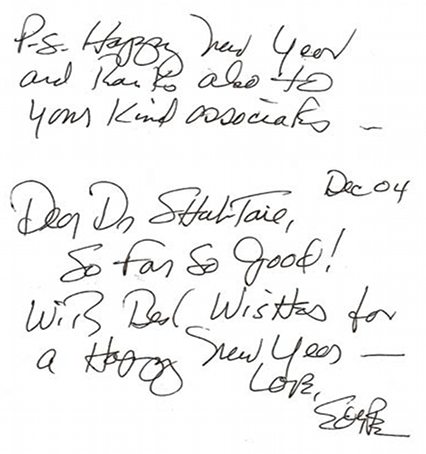 P.S. Happy New Year
and thanks also to
your kind associates –
Dec 04
Dear Dr
So Far So Good!
With Best Wishes for
a Happy New Year —
Love,